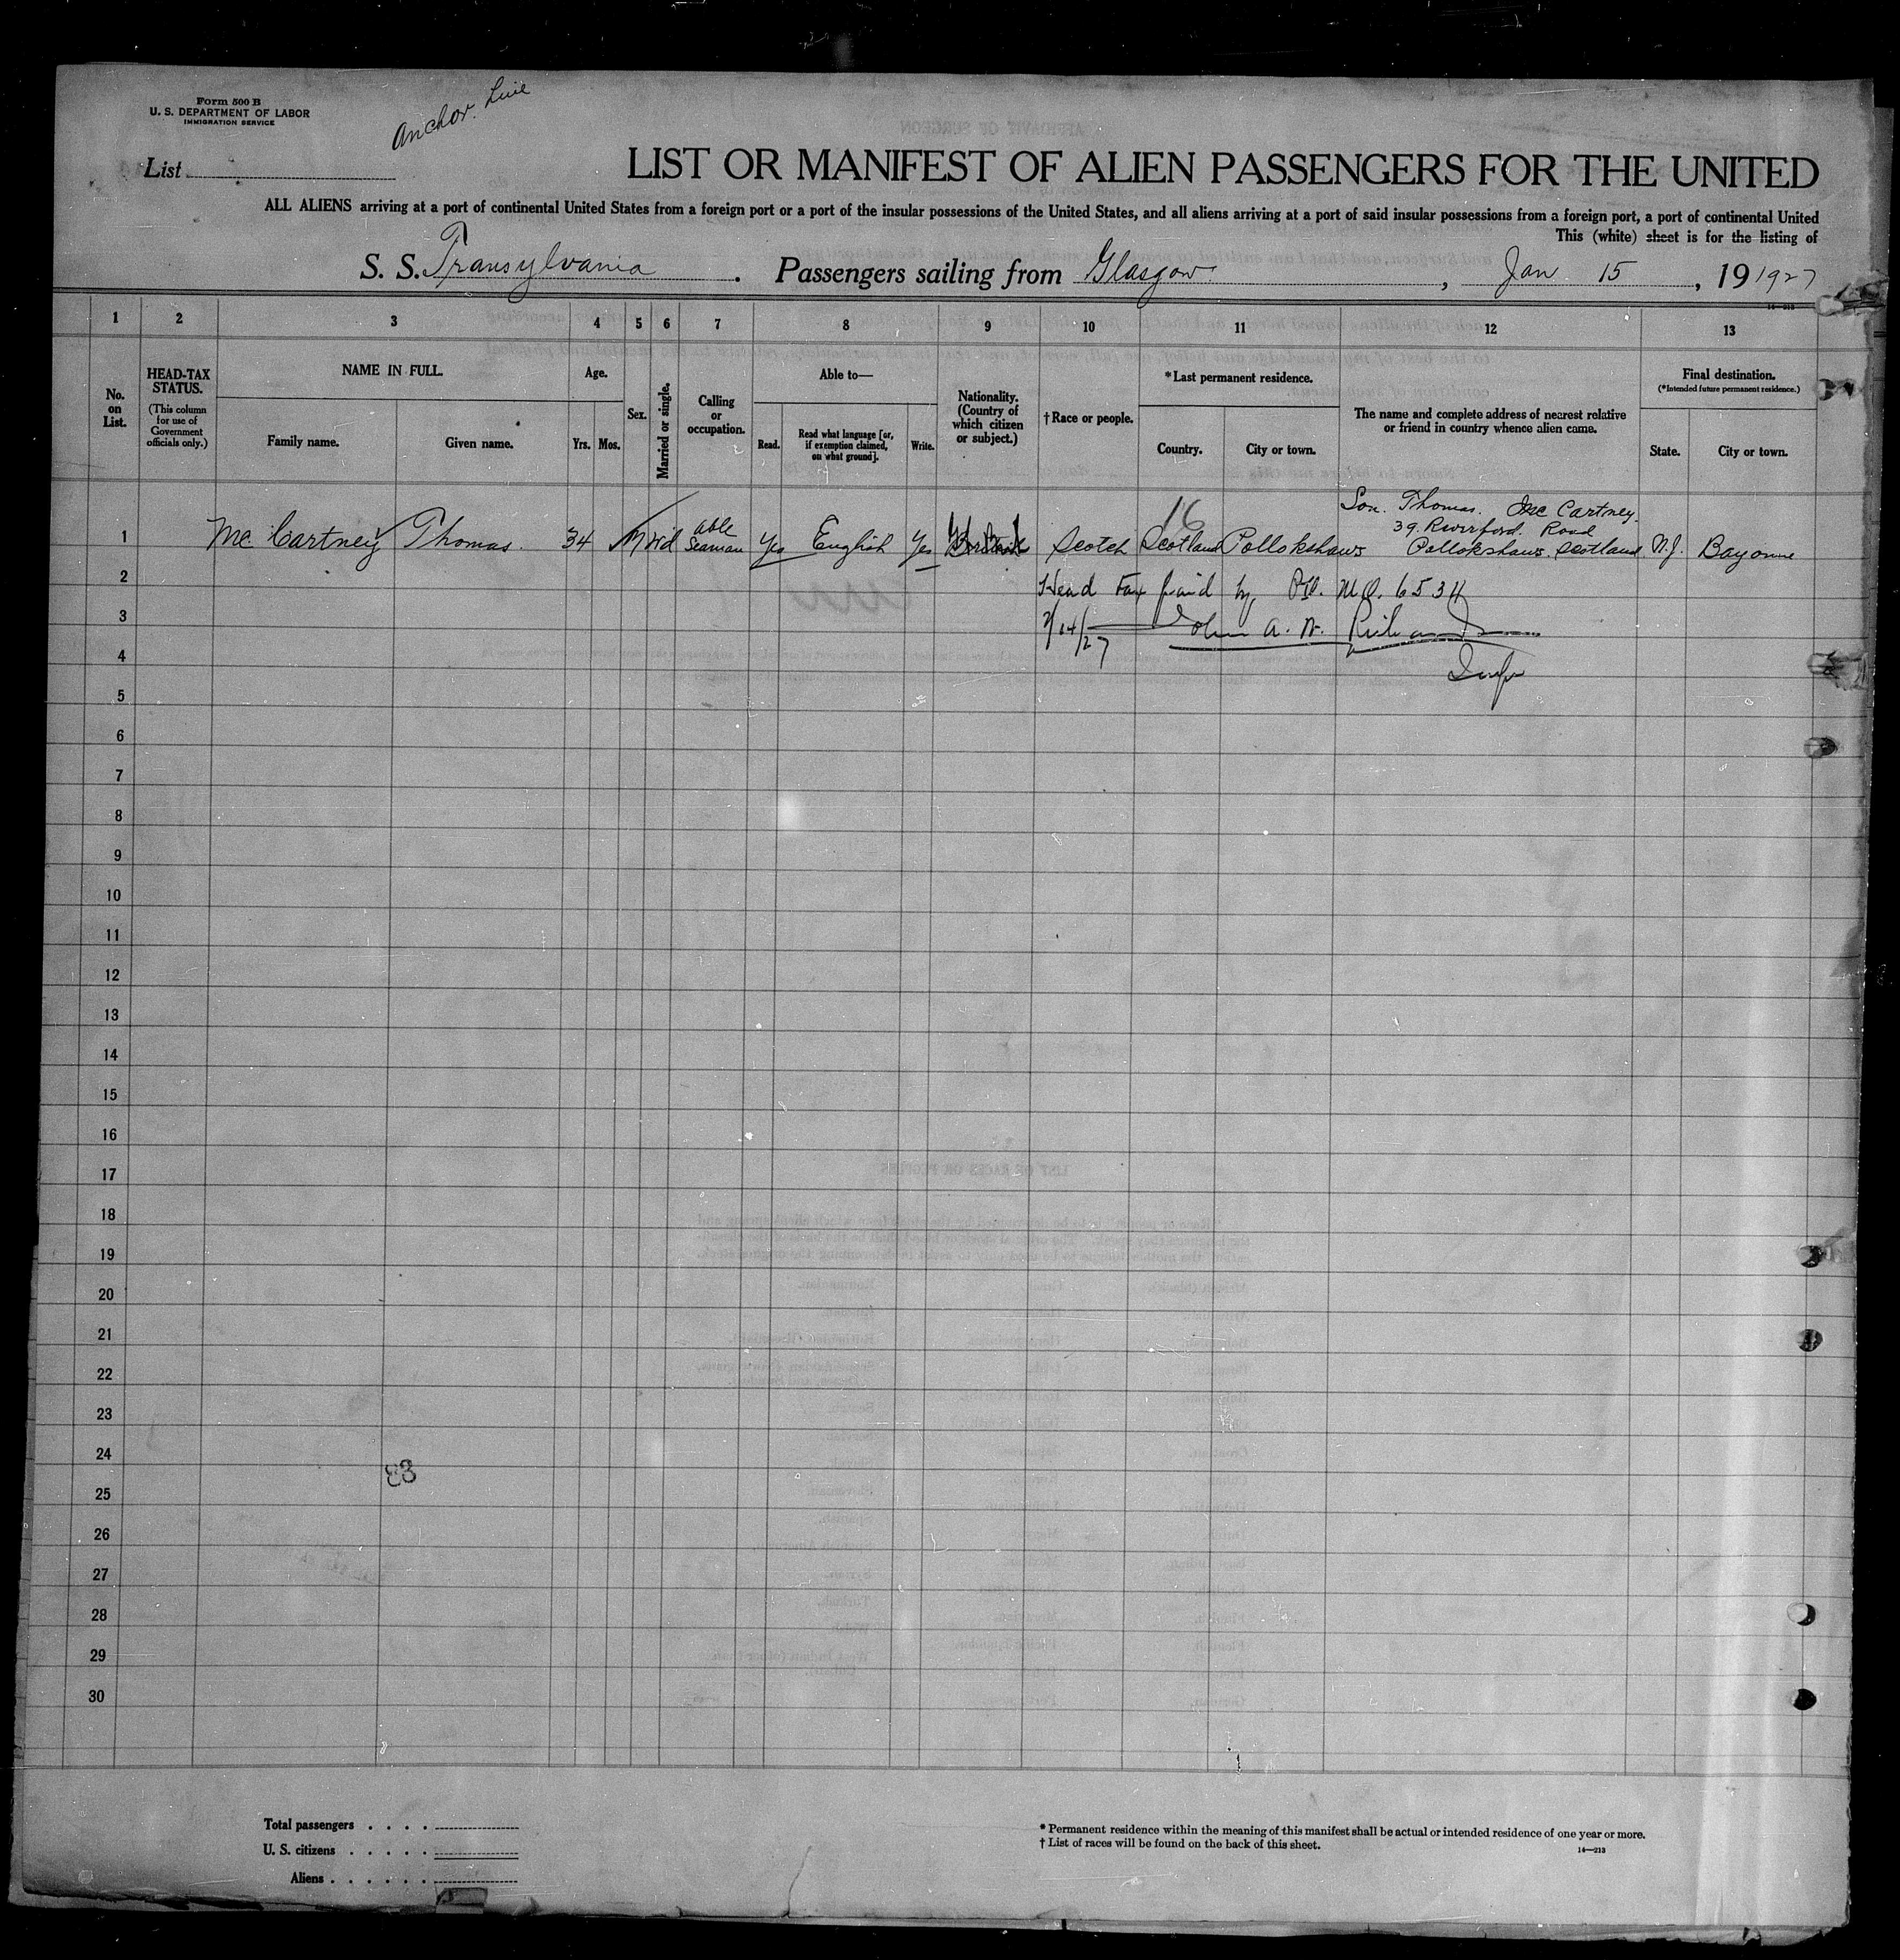 Form 500 B
U. S. DEPARTMENT OF LABOR
IMMIGRATION SERVICE
Anchor Line
List
LIST OR MANIFEST OF ALIEN PASSENGERS FOR THE UNITED
ALL ALIENS arriving at a port of continental United States from a foreign port or a port of the insular possessions of the United States, and all aliens arriving at a port of said insular possessions from a foreign port, a port of continental United
This (white) sheet is for the listing of
S. S. Transylvania. Passengers sailing from Glasgow, Jan. 15, 19 1927
14-213
1 2 3 4 5 6 7 8 9 10 11 12 13
No. on List.
HEAD-TAX STATUS.
(This column for use of Government officials only.)
NAME IN FULL.
Family name. Given name.
Age.
Yrs. Mos.
Sex.
Married or single.
Calling or occupation.
Able to—
Read. Read what language [or, if exemption claimed, on what ground]. Write.
Nationality. (Country of which citizen or subject.)
† Race or people.
*Last permanent residence.
Country. City or town.
The name and complete address of nearest relative or friend in country whence alien came.
Final destination.
(*Intended future permanent residence.)
State. City or town.
16
Son. Thomas. McCartney.
39. Road
1 McCartney Thomas. 34 M Wd able Seaman Yes English Yes Scotch Scotland Pollokshaws Pollokshaws. Scotland N.J. Bayonne
2 Head Tax paid by M.O. 6534
3 John A. W.
4
5
6
7
8
9
10
11
12
13
14
15
16
17
18
19
20
21
22
23
24
83
25
26
27
28
29
30
Total passengers . . . .
U. S. citizens . . . . .
Aliens . . . . . .
* Permanent residence within the meaning of this manifest shall be actual or intended residence of one year or more.
† List of races will be found on the back of this sheet.
14—213